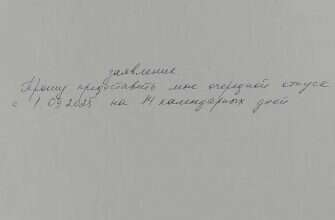 заявление
Прошу предоставить мне очередной отпуск
с 1.09.2025 на 14 календарных дней